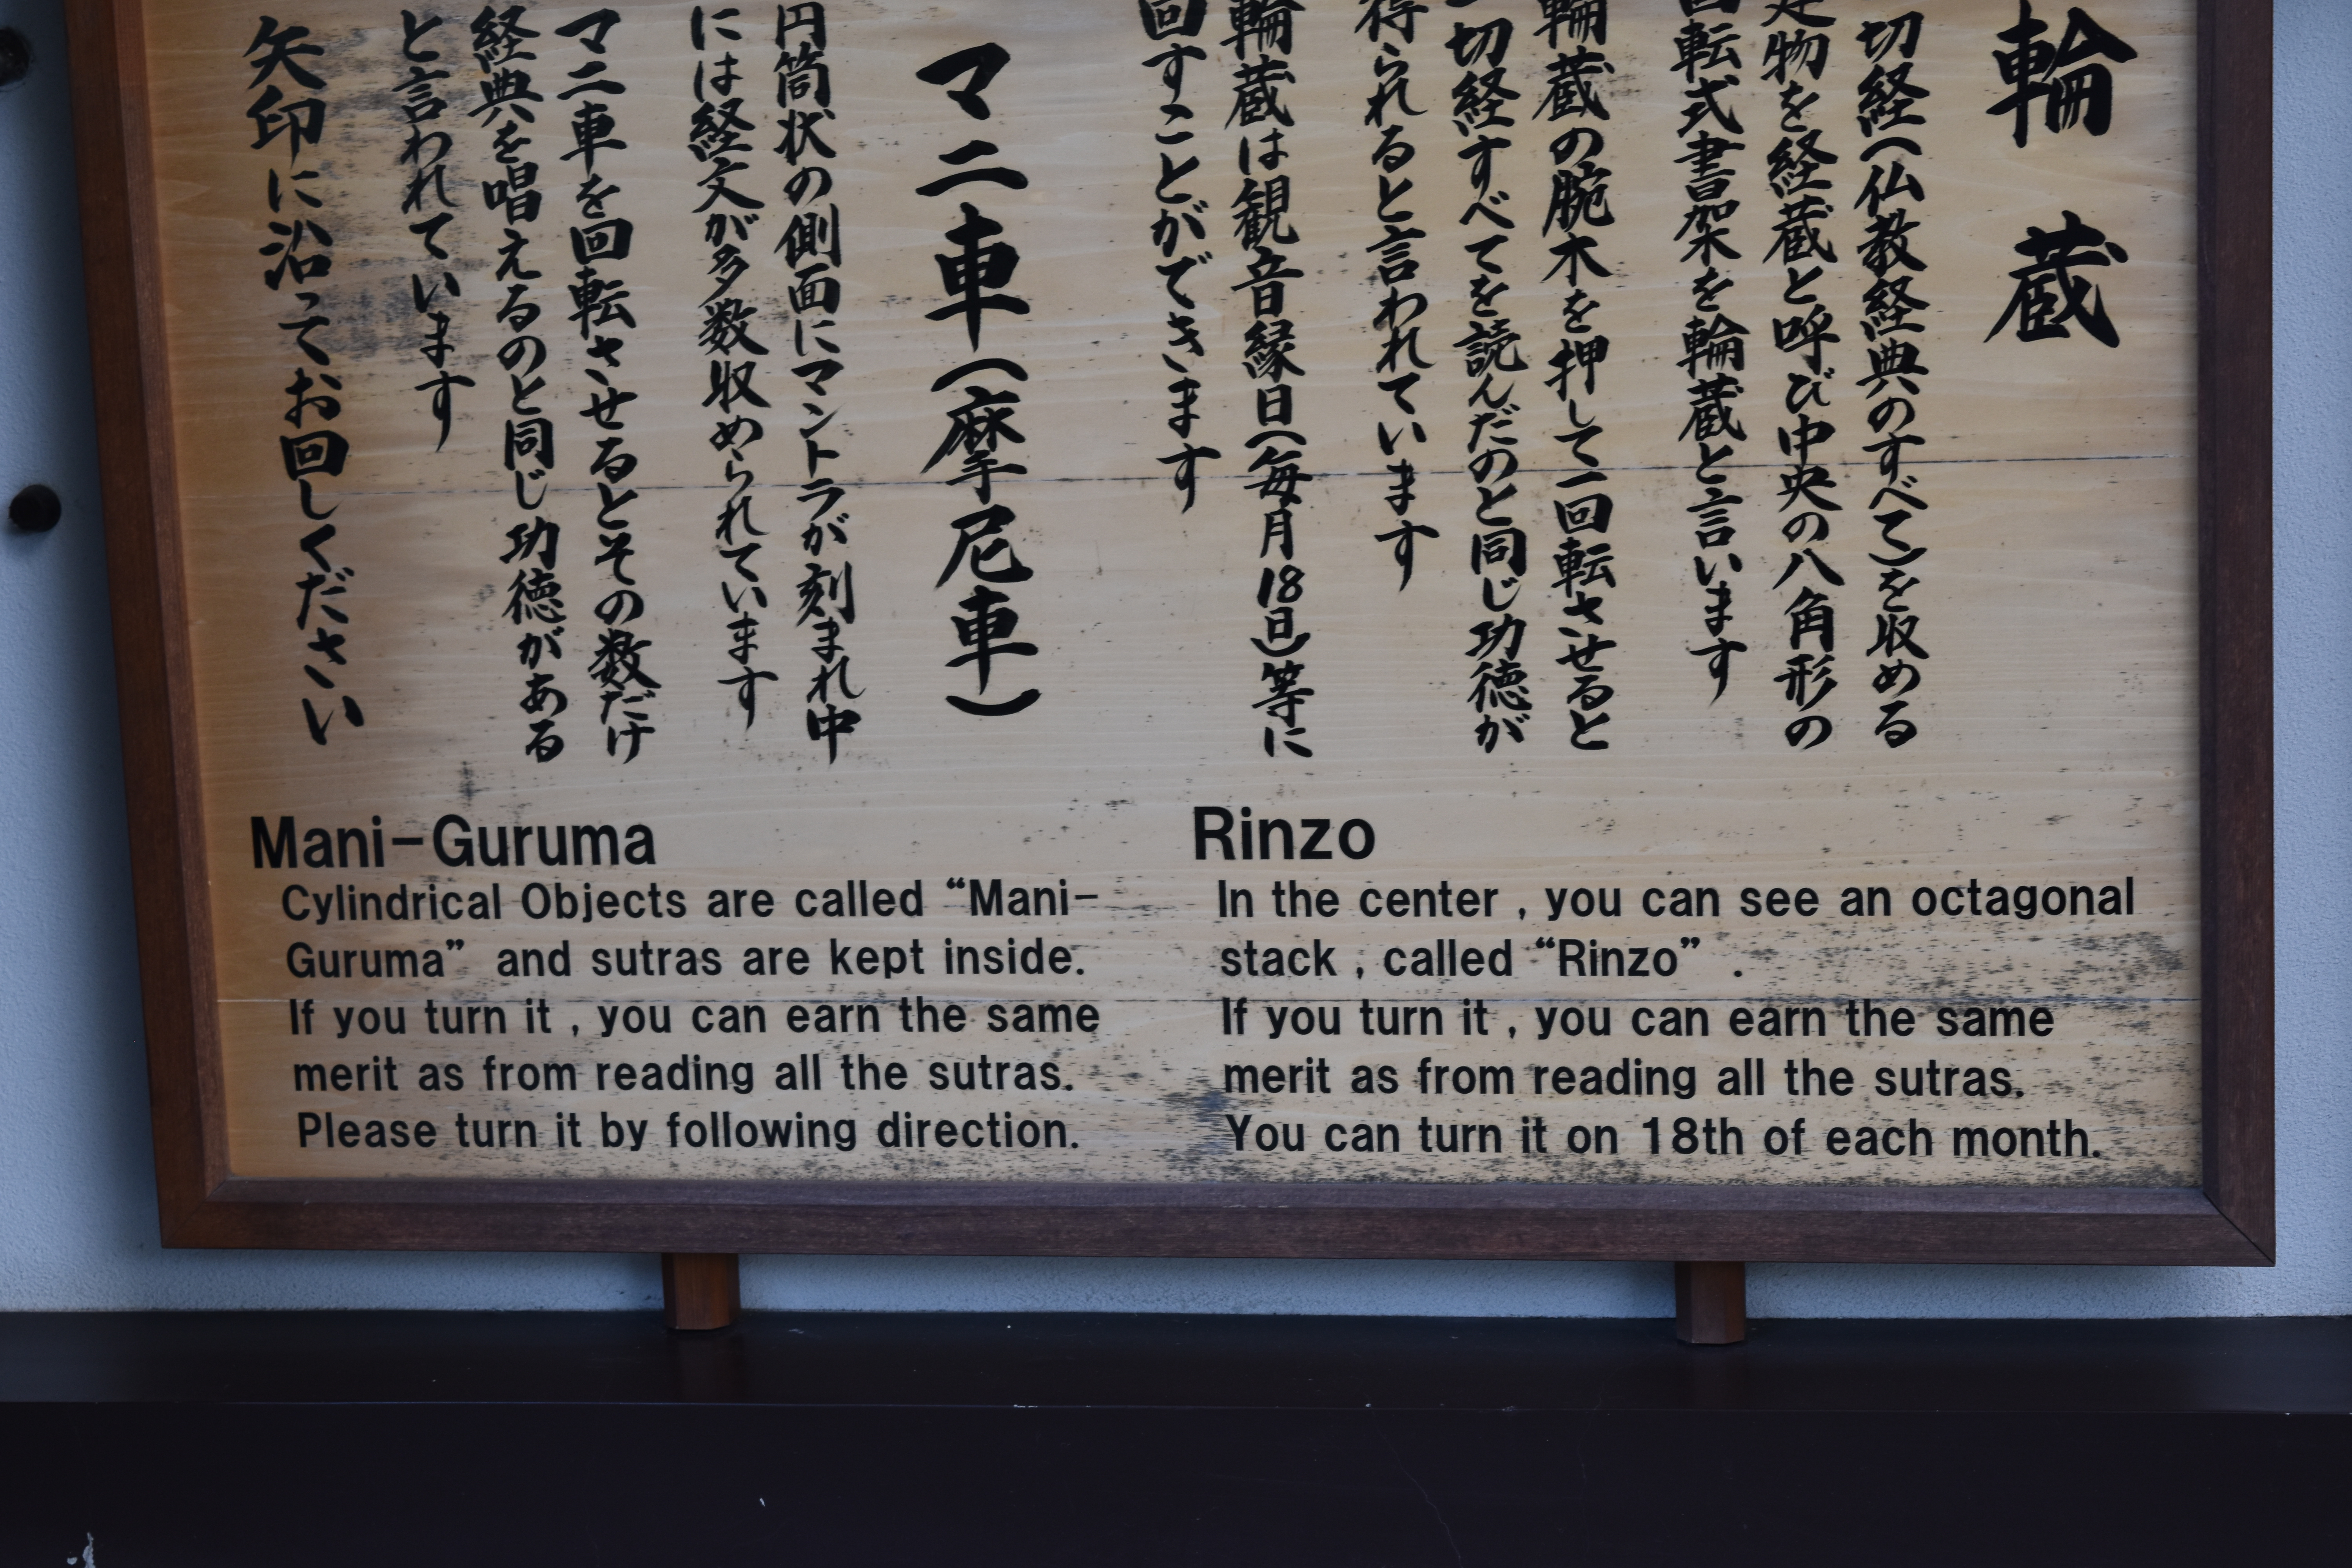 輪蔵
切経(仏教経典のすべて)を収める
建物を経蔵と呼び中央の八角形の
回転式書架を輪蔵と言います
輪蔵の腕木を押して一回転させると
一切経すべてを読んだのと同じ功徳が
得られると言われています
輪蔵は観音縁日(毎月18日)等に
回すことができます
マニ車(摩尼車)
円筒状の側面にマントラが刻まれ中
には経文が多数収められています
マニ車を回転させるとその数だけ
経典を唱えるのと同じ功徳がある
と言われています
矢印に沿ってお回しください
Mani-Guruma
Cylindrical Objects are called “Mani-
Guruma” and sutras are kept inside.
If you turn it , you can earn the same
merit as from reading all the sutras.
Please turn it by following direction.
Rinzo
In the center , you can see an octagonal
stack , called “Rinzo” .
If you turn it , you can earn the same
merit as from reading all the sutras.
You can turn it on 18th of each month.